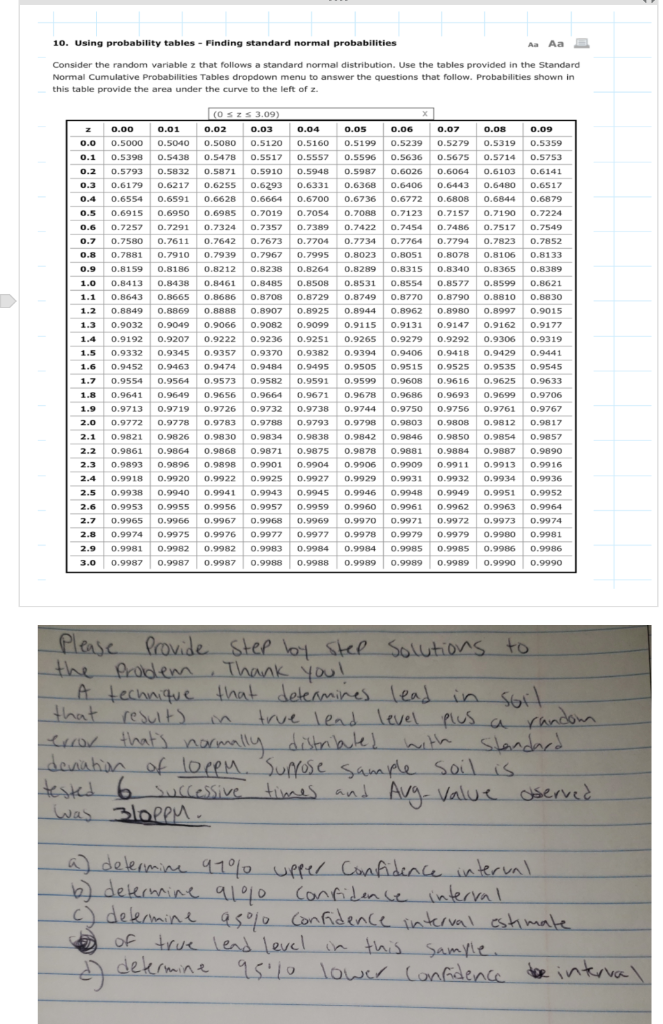 10. Using probability tables - Finding standard normal probabilities
Aa Aa
Consider the random variable z that follows a standard normal distribution. Use the tables provided in the Standard
Normal Cumulative Probabilities Tables dropdown menu to answer the questions that follow. Probabilities shown in
this table provide the area under the curve to the left of z.
(0 ≤ z ≤ 3.09) X
z 0.00 0.01 0.02 0.03 0.04 0.05 0.06 0.07 0.08 0.09
0.0 0.5000 0.5040 0.5080 0.5120 0.5160 0.5199 0.5239 0.5279 0.5319 0.5359
0.1 0.5398 0.5438 0.5478 0.5517 0.5557 0.5596 0.5636 0.5675 0.5714 0.5753
0.2 0.5793 0.5832 0.5871 0.5910 0.5948 0.5987 0.6026 0.6064 0.6103 0.6141
0.3 0.6179 0.6217 0.6255 0.6293 0.6331 0.6368 0.6406 0.6443 0.6480 0.6517
0.4 0.6554 0.6591 0.6628 0.6664 0.6700 0.6736 0.6772 0.6808 0.6844 0.6879
0.5 0.6915 0.6950 0.6985 0.7019 0.7054 0.7088 0.7123 0.7157 0.7190 0.7224
0.6 0.7257 0.7291 0.7324 0.7357 0.7389 0.7422 0.7454 0.7486 0.7517 0.7549
0.7 0.7580 0.7611 0.7642 0.7673 0.7704 0.7734 0.7764 0.7794 0.7823 0.7852
0.8 0.7881 0.7910 0.7939 0.7967 0.7995 0.8023 0.8051 0.8078 0.8106 0.8133
0.9 0.8159 0.8186 0.8212 0.8238 0.8264 0.8289 0.8315 0.8340 0.8365 0.8389
1.0 0.8413 0.8438 0.8461 0.8485 0.8508 0.8531 0.8554 0.8577 0.8599 0.8621
1.1 0.8643 0.8665 0.8686 0.8708 0.8729 0.8749 0.8770 0.8790 0.8810 0.8830
1.2 0.8849 0.8869 0.8888 0.8907 0.8925 0.8944 0.8962 0.8980 0.8997 0.9015
1.3 0.9032 0.9049 0.9066 0.9082 0.9099 0.9115 0.9131 0.9147 0.9162 0.9177
1.4 0.9192 0.9207 0.9222 0.9236 0.9251 0.9265 0.9279 0.9292 0.9306 0.9319
1.5 0.9332 0.9345 0.9357 0.9370 0.9382 0.9394 0.9406 0.9418 0.9429 0.9441
1.6 0.9452 0.9463 0.9474 0.9484 0.9495 0.9505 0.9515 0.9525 0.9535 0.9545
1.7 0.9554 0.9564 0.9573 0.9582 0.9591 0.9599 0.9608 0.9616 0.9625 0.9633
1.8 0.9641 0.9649 0.9656 0.9664 0.9671 0.9678 0.9686 0.9693 0.9699 0.9706
1.9 0.9713 0.9719 0.9726 0.9732 0.9738 0.9744 0.9750 0.9756 0.9761 0.9767
2.0 0.9772 0.9778 0.9783 0.9788 0.9793 0.9798 0.9803 0.9808 0.9812 0.9817
2.1 0.9821 0.9826 0.9830 0.9834 0.9838 0.9842 0.9846 0.9850 0.9854 0.9857
2.2 0.9861 0.9864 0.9868 0.9871 0.9875 0.9878 0.9881 0.9884 0.9887 0.9890
2.3 0.9893 0.9896 0.9898 0.9901 0.9904 0.9906 0.9909 0.9911 0.9913 0.9916
2.4 0.9918 0.9920 0.9922 0.9925 0.9927 0.9929 0.9931 0.9932 0.9934 0.9936
2.5 0.9938 0.9940 0.9941 0.9943 0.9945 0.9946 0.9948 0.9949 0.9951 0.9952
2.6 0.9953 0.9955 0.9956 0.9957 0.9959 0.9960 0.9961 0.9962 0.9963 0.9964
2.7 0.9965 0.9966 0.9967 0.9968 0.9969 0.9970 0.9971 0.9972 0.9973 0.9974
2.8 0.9974 0.9975 0.9976 0.9977 0.9977 0.9978 0.9979 0.9979 0.9980 0.9981
2.9 0.9981 0.9982 0.9982 0.9983 0.9984 0.9984 0.9985 0.9985 0.9986 0.9986
3.0 0.9987 0.9987 0.9987 0.9988 0.9988 0.9989 0.9989 0.9989 0.9990 0.9990
Please Provide Step by Step Solutions to
the Problem. Thank you!
A technique that determines lead in soil
that results in true lead level plus a random
error that's normally distributed with standard
deviation of 10PPM. Suppose sample soil is
tested 6 successive times and Avg-value oserved
was 310PPM.
a) determine 97% upper Confidence interval
b) determine 91% confidence interval
c) determine 95% confidence interval estimate
of true lead level in this sample.
d) determine 95% lower confidence interval